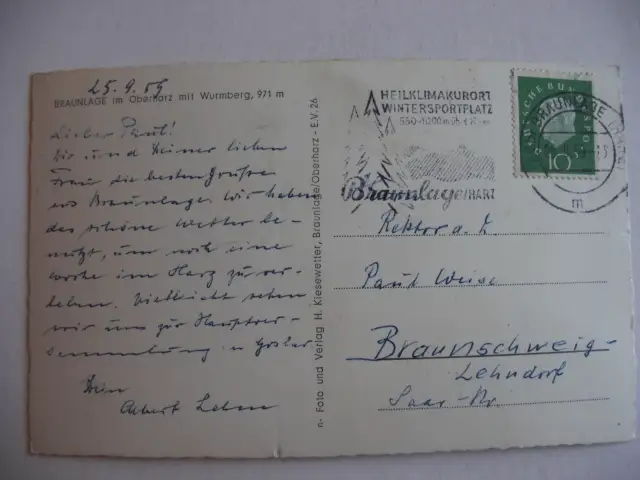 25.9.59
BRAUNLAGE im Oberharz mit Wurmberg, 971 m
Lieber Paul!
Dir und Deiner lieben
Frau die besten Grüsse
aus Braunlage. Wir haben
das schöne Wetter be-
nutzt, um noch eine
Woche im Harz zu ver-
leben. Vielleicht sehen
wir uns zur Hauptver-
sammlung in Goslar
Dein
Albert
n- Foto und Verlag H. Kiesewetter, Braunlage/Oberharz - E.V. 26
HEILKLIMAKURORT
WINTERSPORTPLATZ
Braunlage/HARZ
DEUTSCHE BUNDESPOST
10
BRAUNLAGE
m
Rektor a. D.
Paul Weise
Braunschweig-
Lehndorf
Saar-